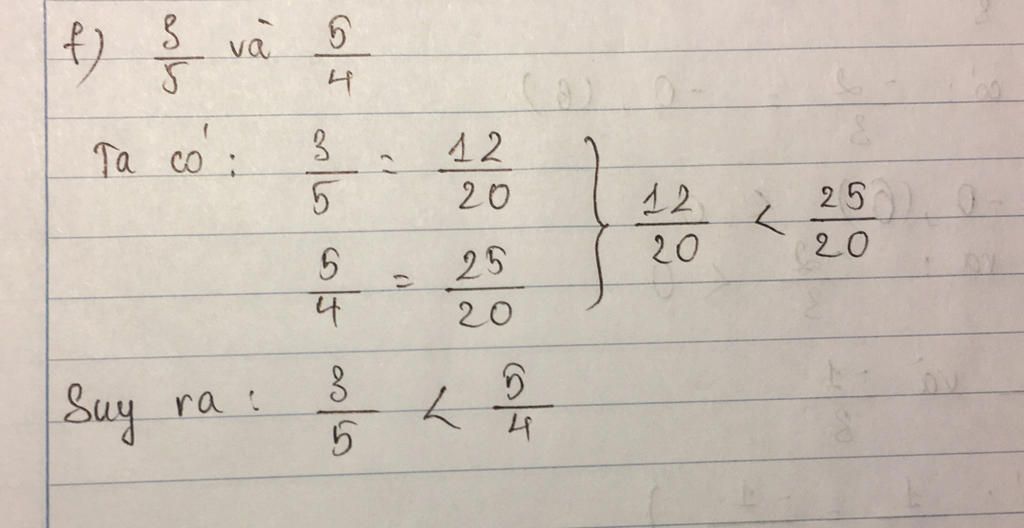 f) 3/5 và 5/4
Ta có: 3/5 = 12/20
5/4 = 25/20
} 12/20 < 25/20
Suy ra: 3/5 < 5/4